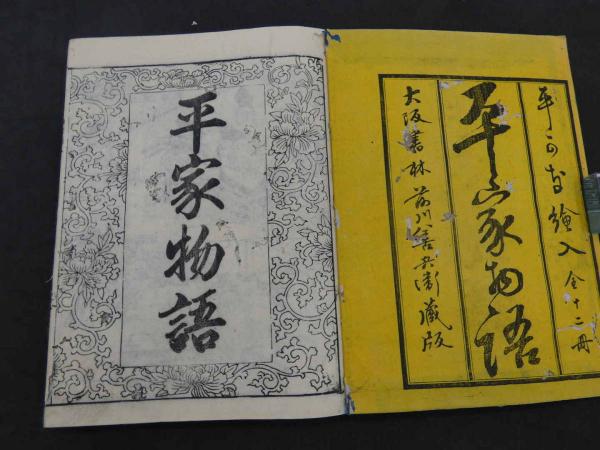 平家物語
繪入 全十二冊
平家物語
大阪書林 前川善兵衛藏版